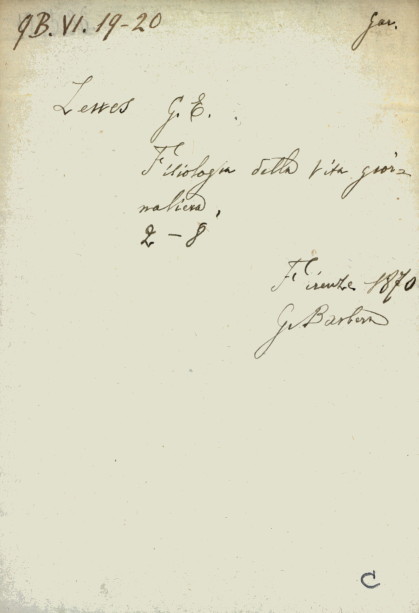 9B. VI. 19-20 Gar.
Lewes G. E.
Fisiologia della vita gior=
naliera,
2 - 8
Firenze 1870
G. Barbera
C